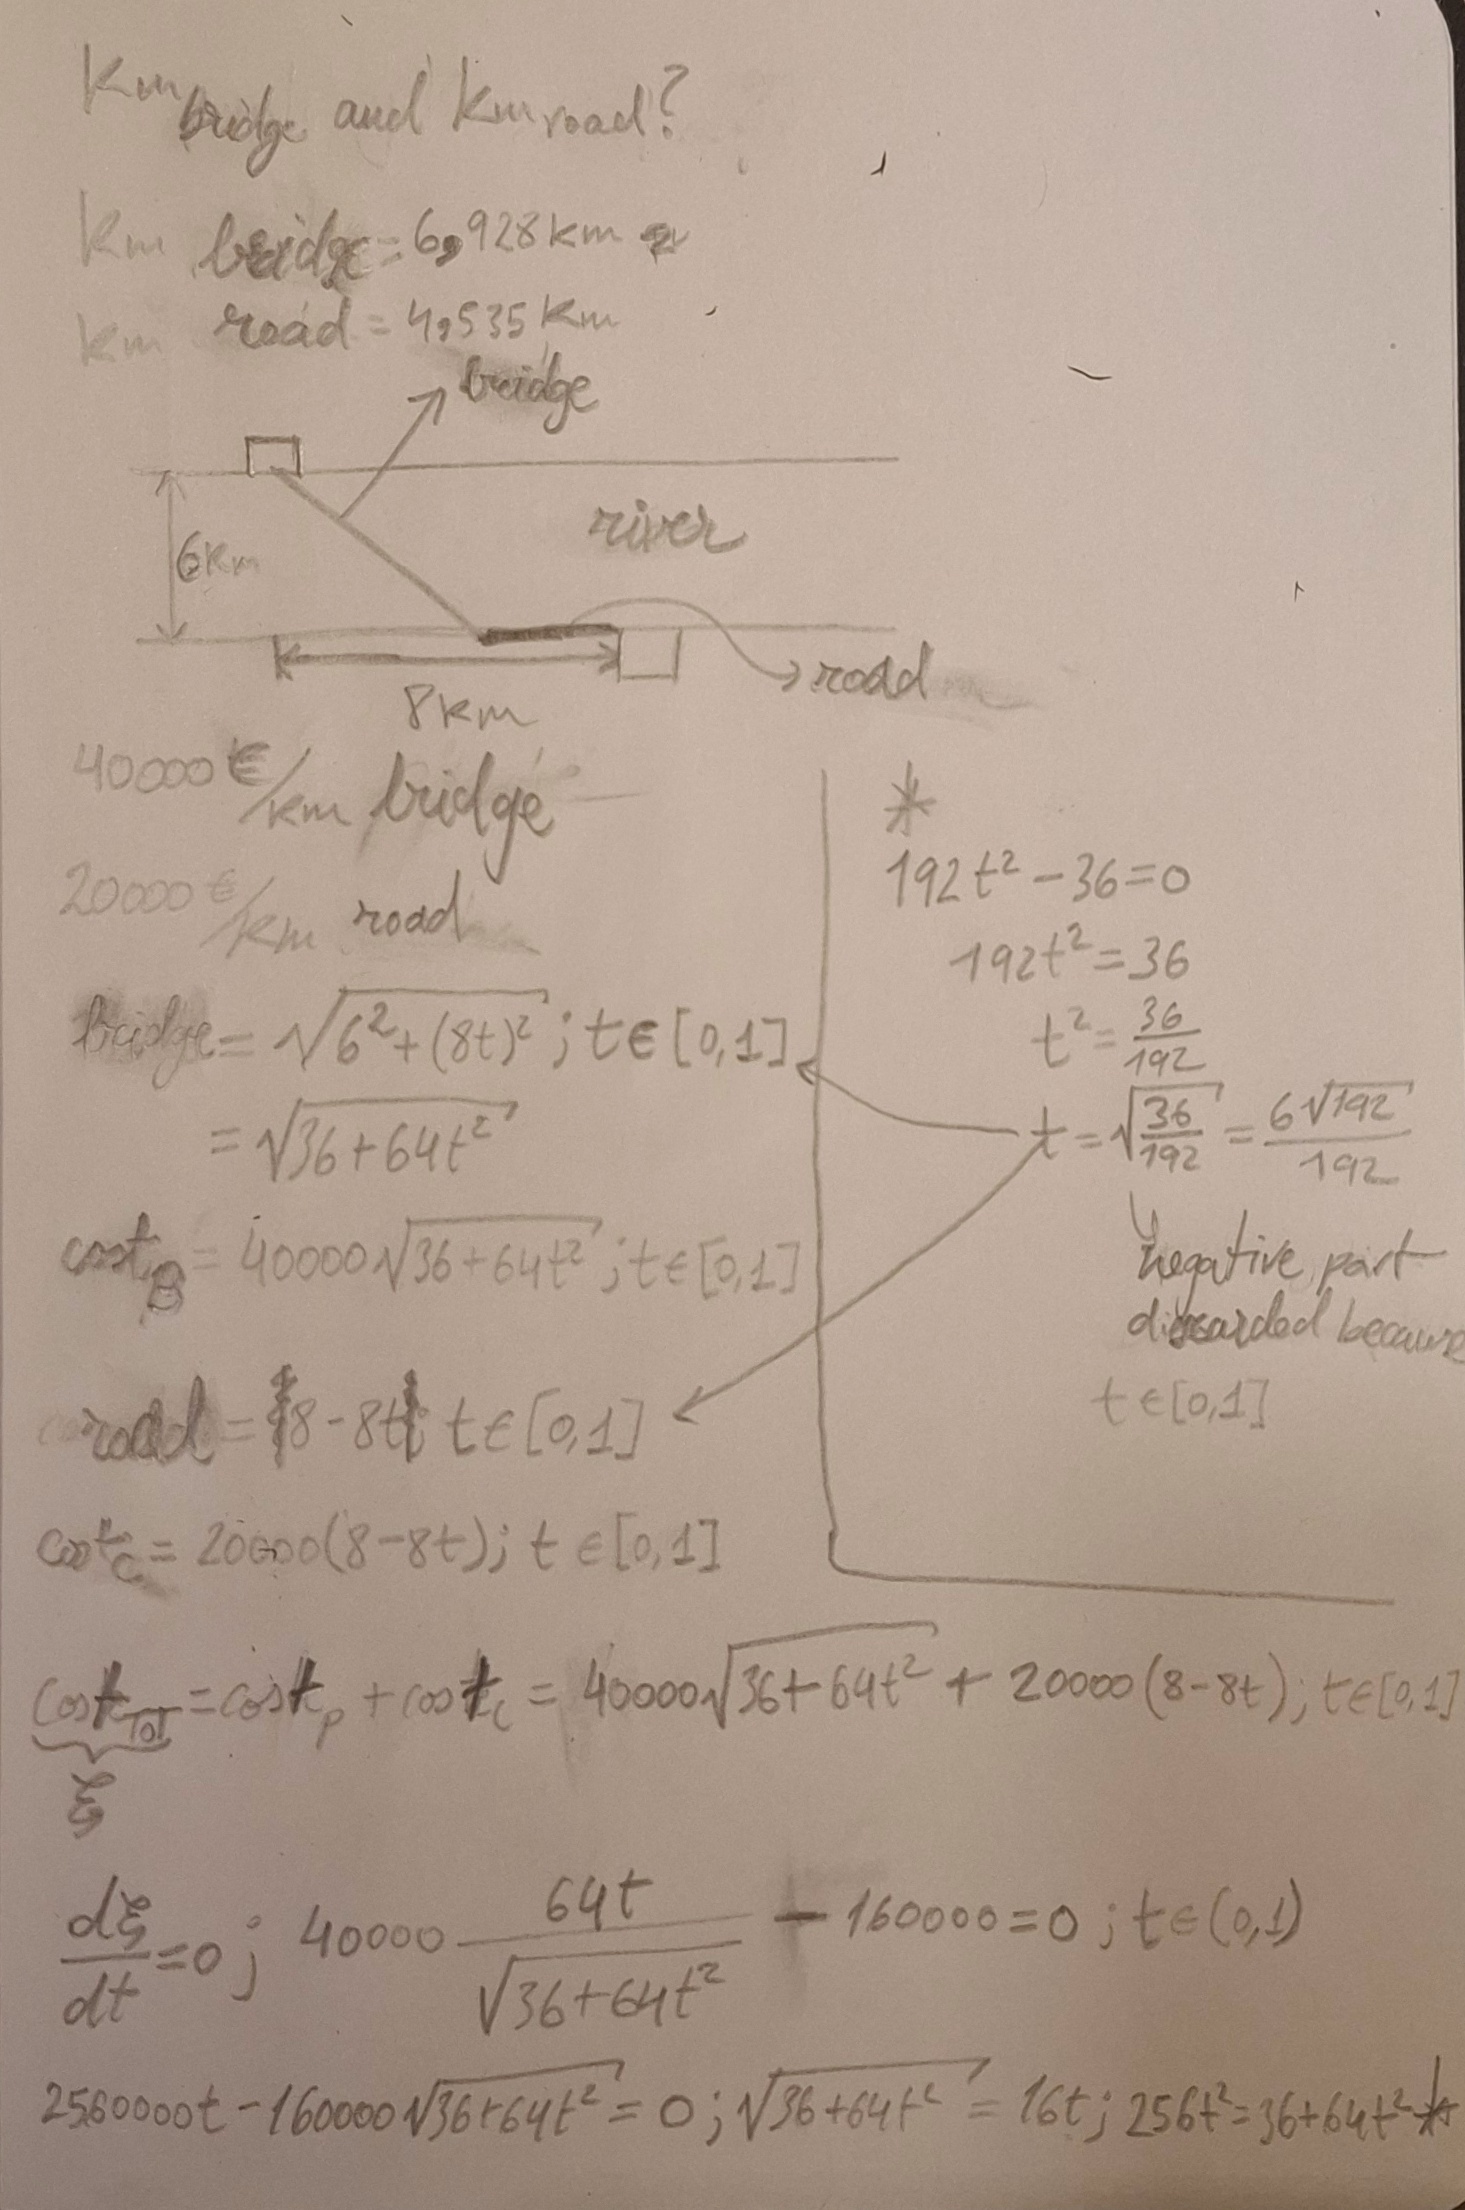 Km bridge and Km road?
Km bridge = 6,928 km
km road = 4,535 Km
bridge
river
6 Km
road
8 Km
40000 €/km bridge
20000 €/km road
bridge = √(6² + (8t)²) ; t ∈ [0,1]
= √(36 + 64t²)
cost_B = 40000√(36 + 64t²) ; t ∈ [0,1]
road = {8 - 8t} t ∈ [0,1]
cost_C = 20000(8 - 8t); t ∈ [0,1]
*
192t² - 36 = 0
192t² = 36
t² = 36/192
t = √(36/192) = 6√192/192
negative part
discarded because
t ∈ [0,1]
cost_TOT = cost_p + cost_c = 40000√(36 + 64t²) + 20000(8 - 8t); t ∈ [0,1]
ξ
dξ/dt = 0 ; 40000 64t/√(36 + 64t²) - 160000 = 0 ; t ∈ (0,1)
2560000t - 160000√(36 + 64t²) = 0 ; √(36 + 64t²) = 16t; 256t² = 36 + 64t² *